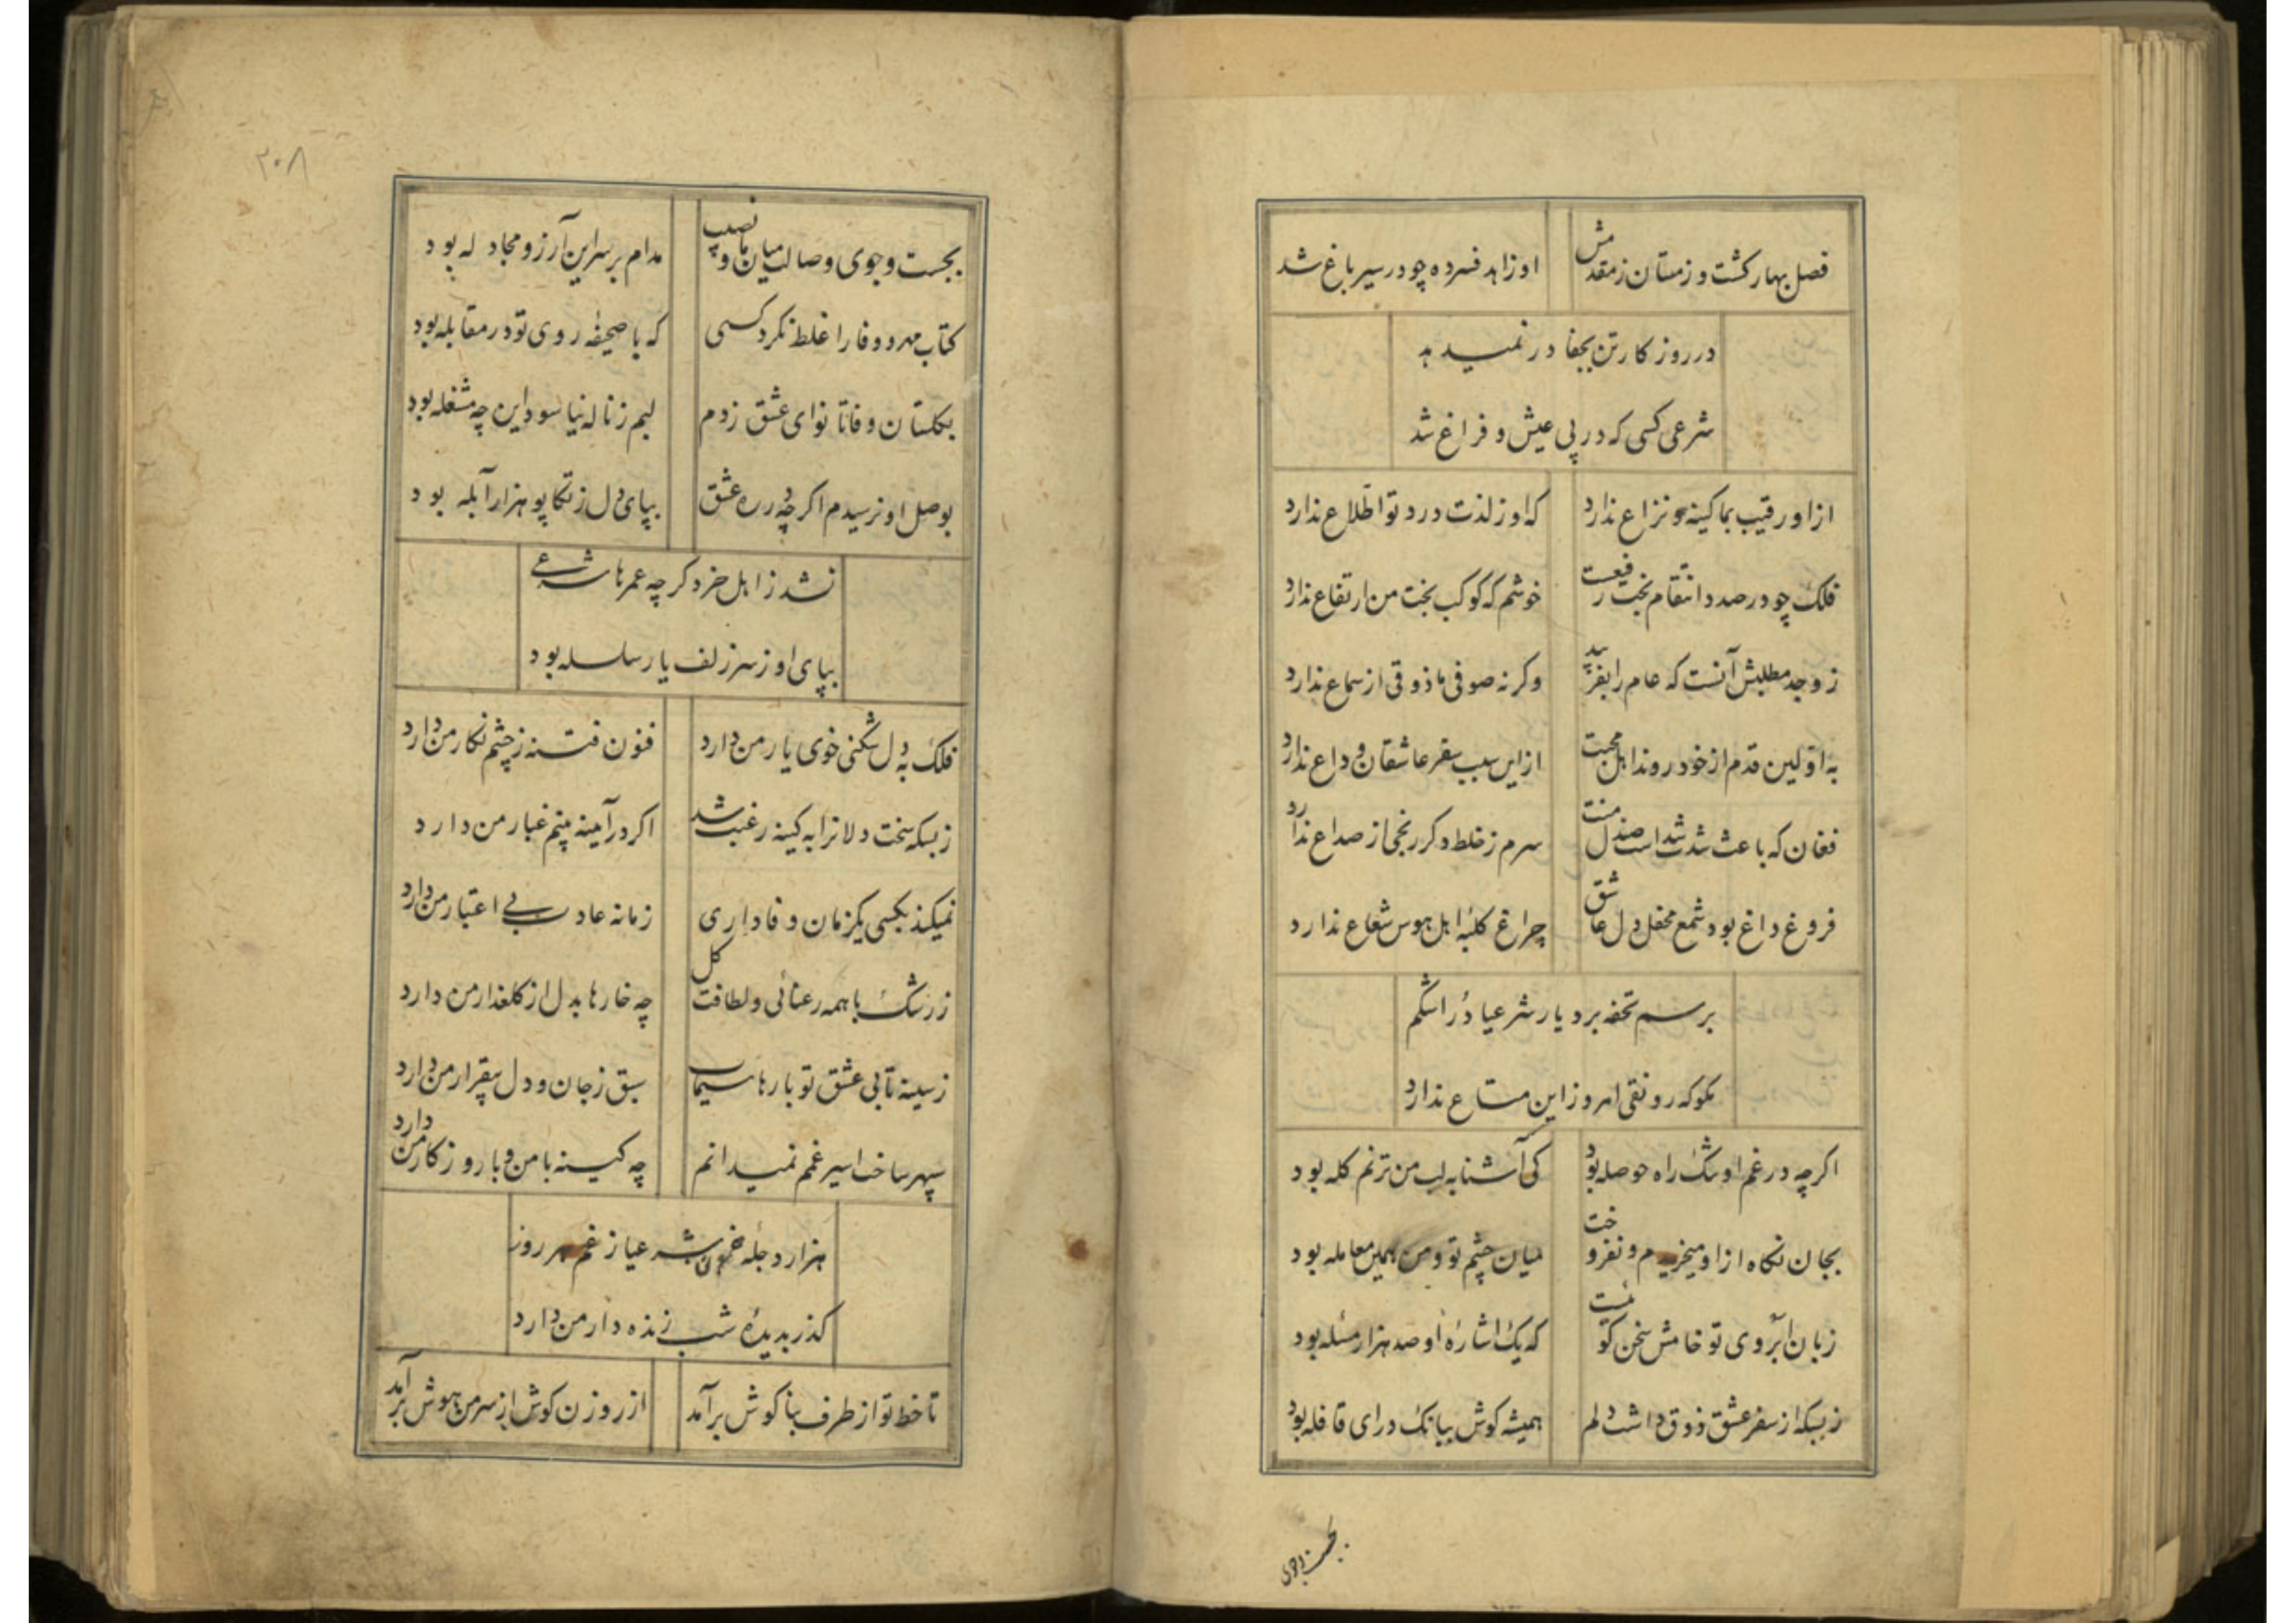 فصل بهار کشت و زمستان ز مقدمش
او زاهد فسرده چو در سیر باغ شد
در روزکار تن بجفا در نمیدهد
شرعی کسی که در پی عیش و فراغ شد
از او رقیب بما کینه و نزاع ندارد
که او ز لذت درد تو اطلاع ندارد
فلک چو در صدد انتقام بخت رفیعست
خوشم که کوکب بخت من ارتفاع ندارد
ز وجد مطلبش آنست که عام را بفریبد
وکرنه صوفی ما ذوقی از سماع ندارد
به اولین قدم از خود روند اهل محبت
از این سبب سفر عاشقان وداع ندارد
فغان که باعث شدت شداست صندل منت
سرم ز خلط دکر رنجی از صداع ندارد
فروغ داغ بود شمع محفل دل عاشق
چراغ کلبهٔ اهل هوس شعاع ندارد
برسم تحفه برد یار شرعیا دُر اشکم
بکو که رونقی امروز این متاع ندارد
اکرچه در غم او شک راه حوصله بود
کی آشنا به لب من ترنم کله بود
بجان نکاه از او میخریدم و نفروخت
میان چشم تو و من همین معامله بود
زبان ابروی تو خامش سخن کوئست
که یک اشارهٔ او صد هزار مسئله بود
ز بسکه از سفر عشق ذوق داشت دلم
همیشه کوش ببانک درای قافله بود
بجست وجوی
۲۰۸
بجست وجوی وصالت میان ما و رقیب
مدام بر سر این آرزو مجادله بود
کتاب مهر و وفا را غلط نکرد کسی
که با صحیفهٔ روی تو در مقابله بود
بکلستان وفا تا نوای عشق زدم
لبم ز ناله نیاسود این چه مشغله بود
بوصل او نرسیدم اکرچه در ره عشق
بپای دل ز تکاپو هزار آبله بود
نشد ز اهل خرد کرچه عمرها شرعی
بپای او ز سر زلف یار سلسله بود
فلک به دل شکنی خوی یار من دارد
فنون فتنه ز چشم نکار من دارد
ز بسکه سخت دلانرا به کینه رغبت شد
اکر در آینه بینم غبار من دارد
نمیکند بکسی یکزمان وفاداری
زمانه عادت بی اعتبار من دارد
ز رشک با همه رعنائی و لطافت کل
چه خارها بدل از کلعذار من دارد
ز سینه تابی عشق تو بارها سیماب
سبق ز جان و دل بیقرار من دارد
سپهر ساخت اسیر غمم نمیدانم
چه کینه با من و با روزکار من دارد
هزار دجلهٔ خون شرعیا ز غم هر روز
کذر بدیدهٔ شب زنده دار من دارد
تا خط تو از طرف بناکوش برآمد
از روزن کوش از سر من هوش برآمد